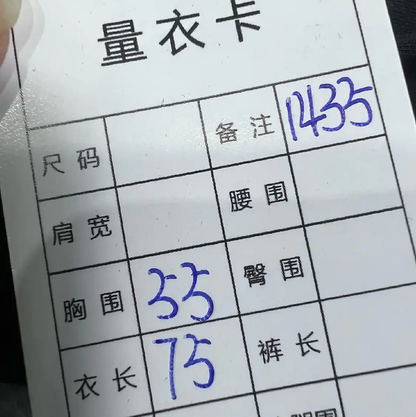 量衣卡
尺码 备注 1435
肩宽 腰围
胸围 55 臀围
衣长 75 裤长
围